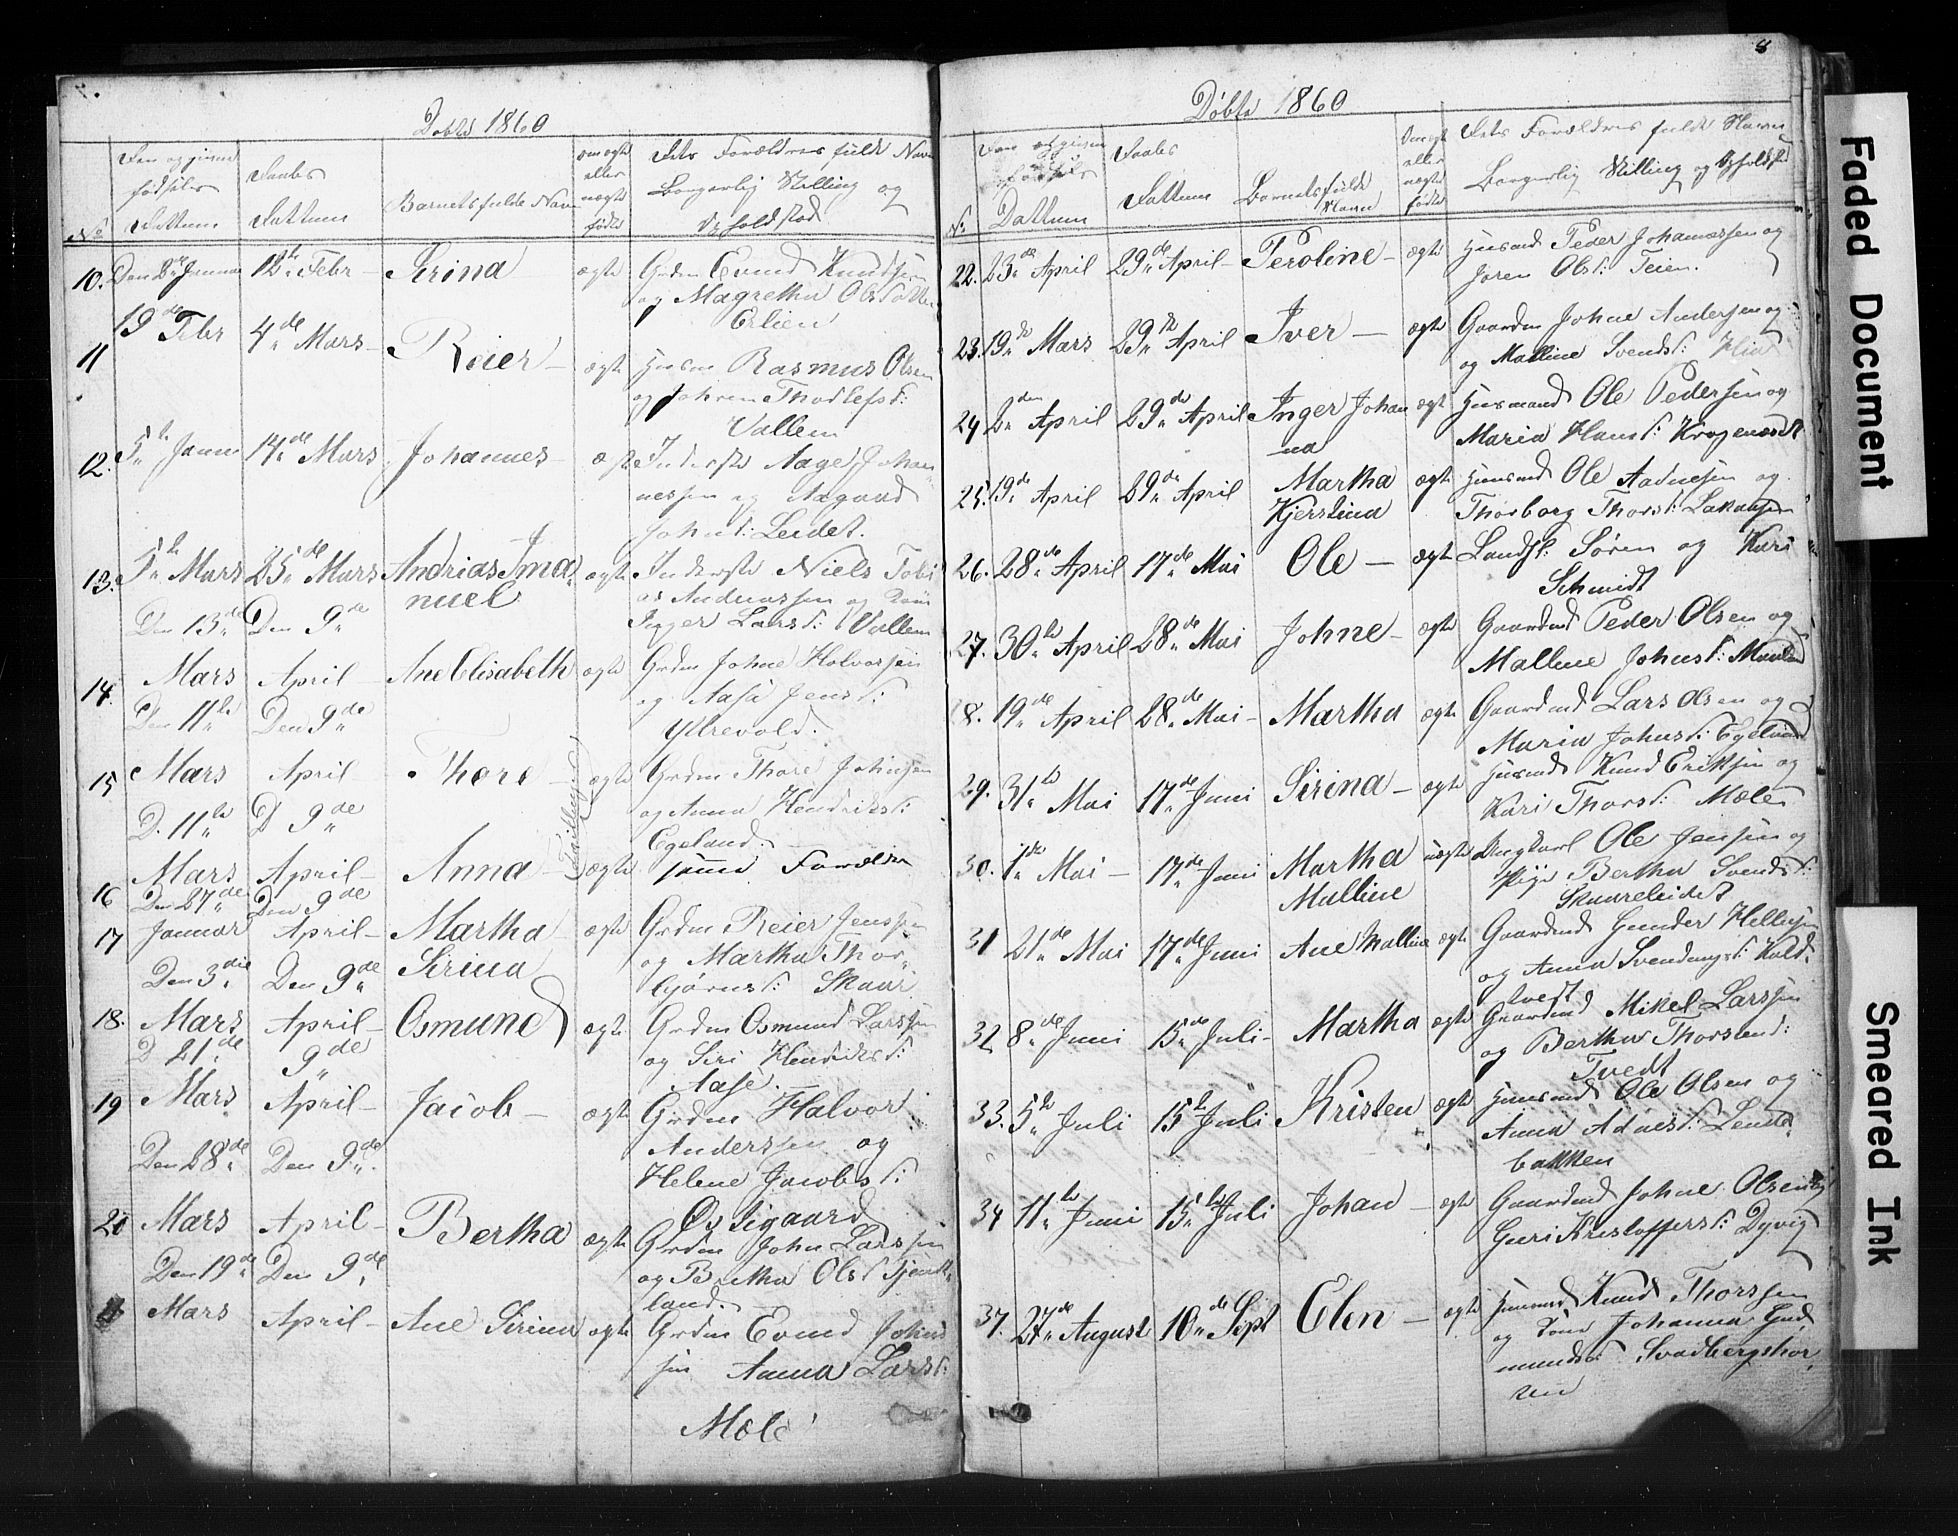 8
Døbte 1860
Den og givne
fødsels
Dattum
Daabs
Dattum
Barnets fulde Navn
om ægte
eller
uægte
fødte
Dets Forældres fulde Navn
Borgerlig Stilling og
Opholdsted
No
10. Den 2de Januar 12te Febr - Serina ægte Grdm Evind Knudsen
og Magrethe Olsdatter
Erlien
11 19de Febr 4de Mars - Reier - ægte Husm Rasmus Olsen
og Johren Thodlefsd:
Vallem
12. 5te Janu 14de Mars Johannes - ægte Inderste Aage Johan
nessen og Aagaard
Johnsd: Leidet.
13. 5te Mars 25de Mars Andrias Ima
nuel ægte Inderste Niels Tobi
as Andreassen og
Larsd: Vallem
14. Den 13de Mars Den 9de April - Ane Elisabeth ægte Grdm Johne Halvorsen
og Aase Jensd:
Ytrevold.
15 Den 11te Mars Den 9de April - Thore - ægte Grdm Thore Johnsen
og Anna Hendriksd:
Egeland.
16 D. 11te Mars D 9de April - Anna - ægte samme Forældre
Tvillinger
17 Den 27de Januar Den 9de April - Martha
Sirina ægte Grdm Reier Jenssen
og Martha Thor
bjørnsd: Skaar
18. Den 3die Mars Den 9de April - Osmund ægte Grdm Osmund Larssen
og Siri Hendriksd:
Aase.
19 D 21de Mars 9de April - Jacob - ægte Grdm Halvor
Anderssen og
Helene Jacobsd:
Øvsigaard
20 Den 28de Mars Den 9de April - Bertha ægte Grdm John Larssen
og Bertha Olsd
land.
Den 19de Mars Den 9de April - Ane Sirina ægte Grdm Evind Johns
sen Anna Larsd:
Mæle
Døbte 1860
Den og givne
fødsels
Dattum
Daabs
Dattum
Barnets fulde
Navn
Om ægte
eller
uægte
fødte
Dets Forældres fulde Navn
Borgerlig Stilling og Opholdsted
No
22. 23de April 29de April - Peroline - ægte Husmd Peder Johannessen og
Joren Olsd: Teien.
23. 19de Mars 29de April Iver - ægte Gaardm Johne Andersen og
og Malline Svendsd:
24 2den April 29de April Inger Johan
na ægte Husmand Ole Pedersen og
Maria Hansd: Kragenæsdt
25. 19de April 29de April Martha
Kjerstina ægte Husmd Ole Aadnesen og
Thorborg Thorsd:
26. 28de April 17de Mai Ole - ægte Landh. Søren og Kari
Schmidt
27. 30te April 28de Mai Johne - ægte Gaardmd Peder Olsen og
Mallene Johnsd:
8. 19de April 28de Mai - Martha ægte Gaardmd Lars Olsen og
Maria Johnsd: Egeland
29. 31te Mai 17de Juni Sirina - ægte Husmd Knud Eriksen og
Kari Thorsd: Mæle
30. 1ste Mai - 17de Juni Martha
Malline uægte Ungkarl Ole Jensen og
Pige Bertha Svendsd:
Skaareleidet
31 21de Mai 17de Juni Ane Malline ægte Gaardmd Gunder Hellesen
og Anna Svendungsd: Kald
tvedt
32 8de Juni 15de Juli - Martha ægte Gaardmd Mikel Larssen
og Bertha Thorsend:
Tvedt
33. 5te Juli 15de Juli Kristen ægte Husmd Ole Olsen og
Anna Adnesd:
bakken
34 11te Juni 15de Juli Johan - ægte Gaardmd Johne Olsen og
Guri Kristoffersd: Dyvig
37. 27de August 10de Sept Elen - ægte Husmd Knud Thorssen
og Kone Johanna Gud
mundsd: Svadbergshør
nen
Faded Document
Smeared Ink